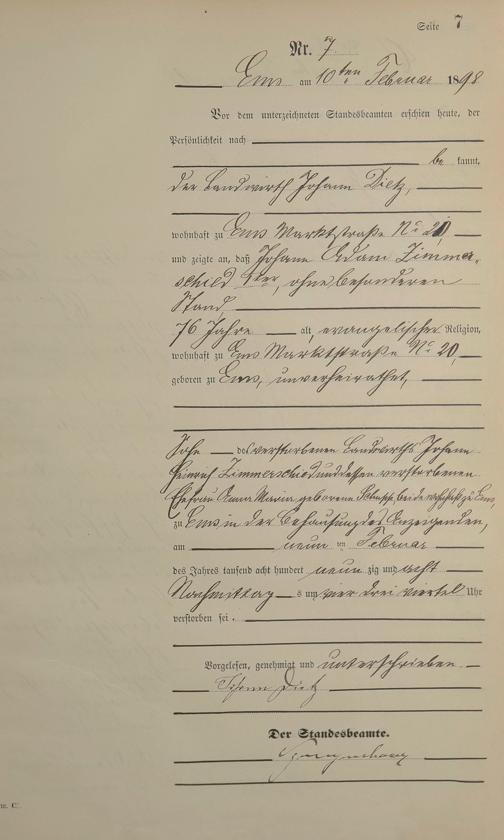 Seite 7
Nr. 7
Ems am 10ten Februar 1898
Vor dem unterzeichneten Standesbeamten erschien heute, der
Persönlichkeit nach
be kannt,
der Landwirth Johann Dietz,
wohnhaft zu Ems Marktstraße No
und zeigte an, daß Johann Adam Zimmer-
schied 1ter, ohne besonderen
Stand
76 Jahre alt, evangelischer Religion,
wohnhaft zu Ems Marktstraße No 20,
geboren zu Ems, unverheirathet,
Sohn des verstorbenen Landwirths Johann
Heinrich Zimmerschied und dessen verstorbenen
Ehefrau Anna Maria geborene beide wohnhaft zu Ems,
zu Ems in der Behausung des Anzeigenden,
am neun ten Februar
des Jahres tausend acht hundert neun zig und acht
Nachmittag s um vier drei viertel Uhr
verstorben sei.
Vorgelesen, genehmigt und unterschrieben
Johann Dietz
Der Standesbeamte.